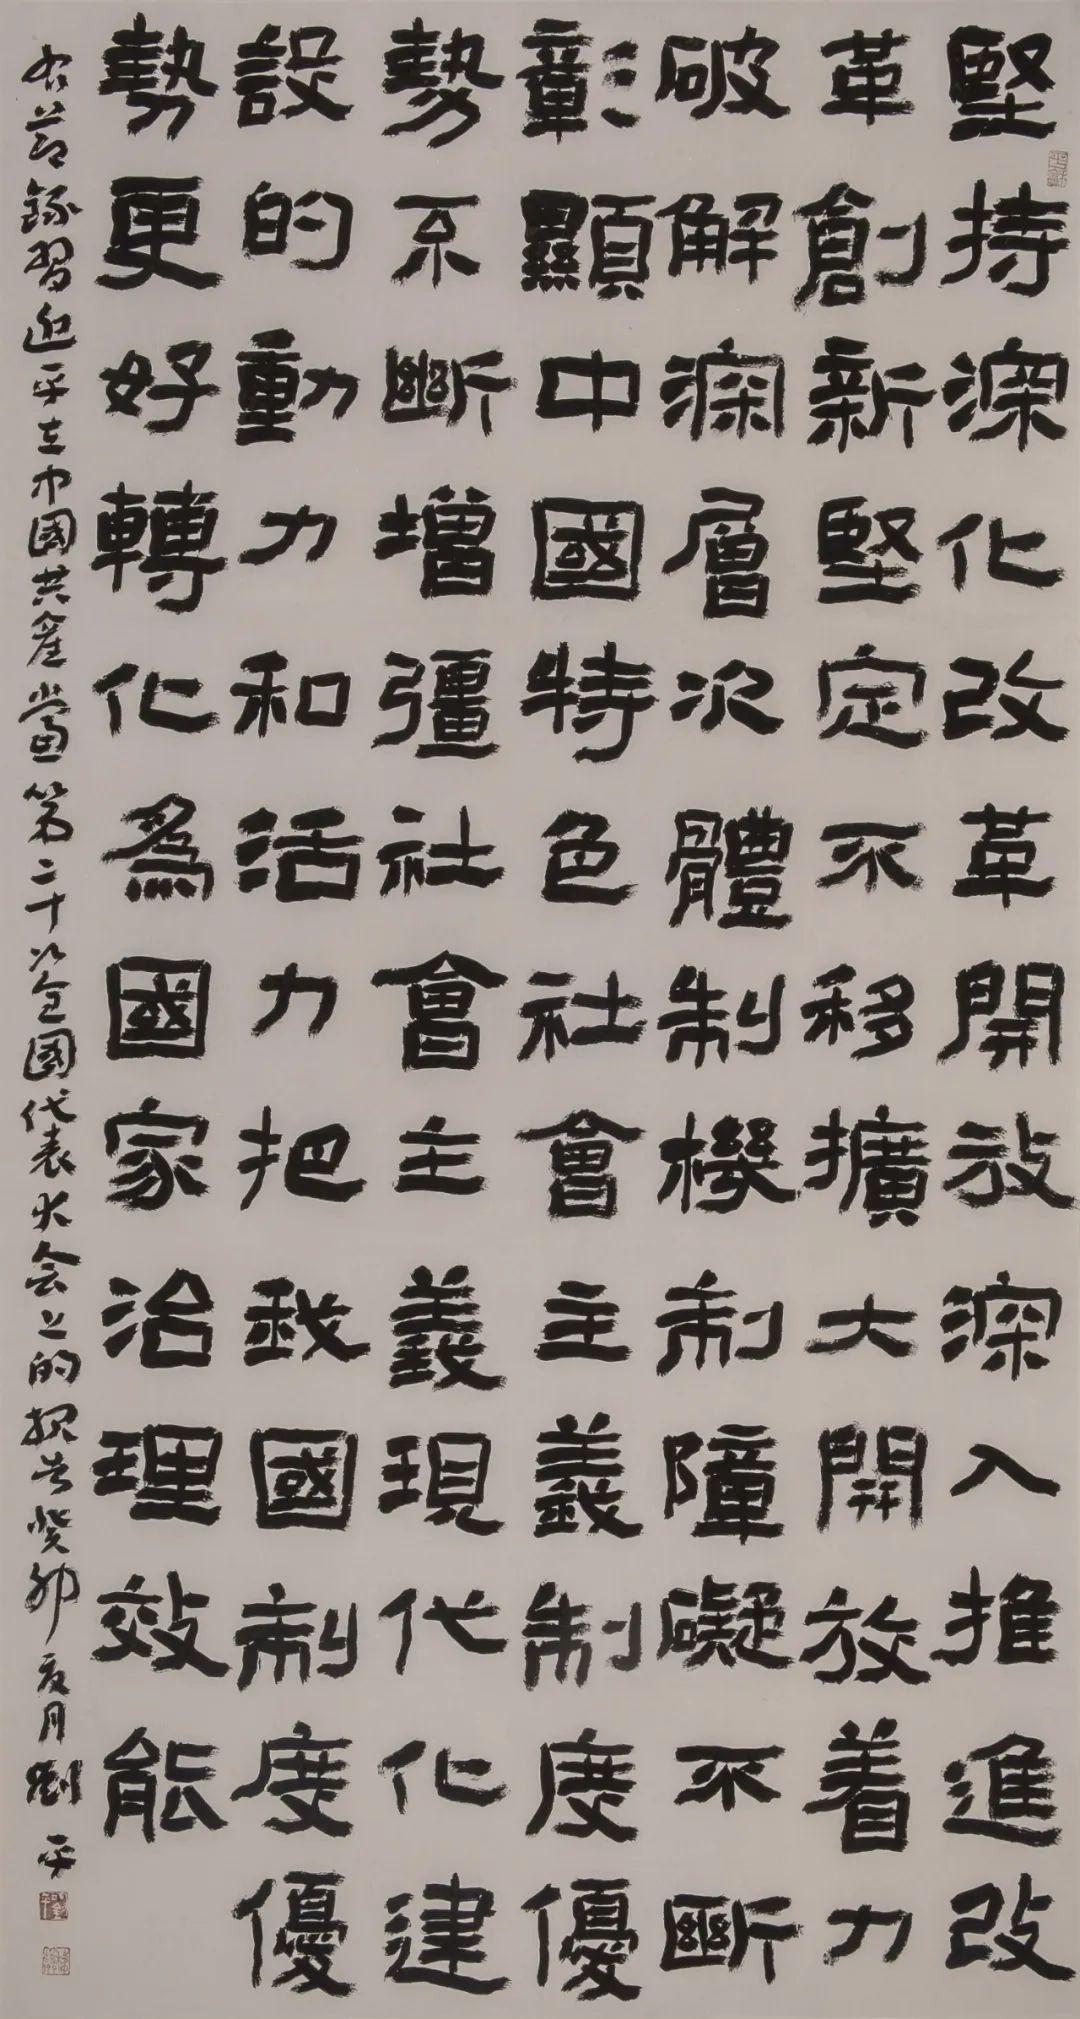 堅持深化改革開放深入推進改
革創新堅定不移擴大開放着力
破解深層次體制機制障礙不斷
彰顯中國特色社會主義制度優
勢不斷增彊社會主義現代化建
設的動力和活力把我國制度優
勢更好轉化爲國家治理效能
右節錄習近平在中國共產黨第二十次全國代表大会上的报告癸卯夏月劉平